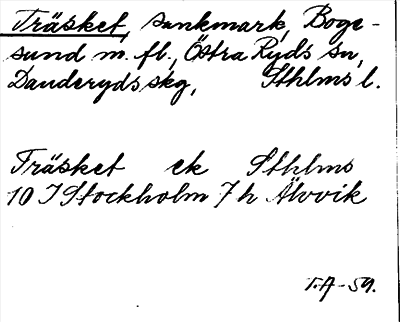 Träsket, sankmark, Boge-
sund m. fl., Östra Ryds sn,
Danderyds skg, Sthlms l.
Träsket ek Sthlms
10 I Stockholm 7 h Älvvik
T.A-59.